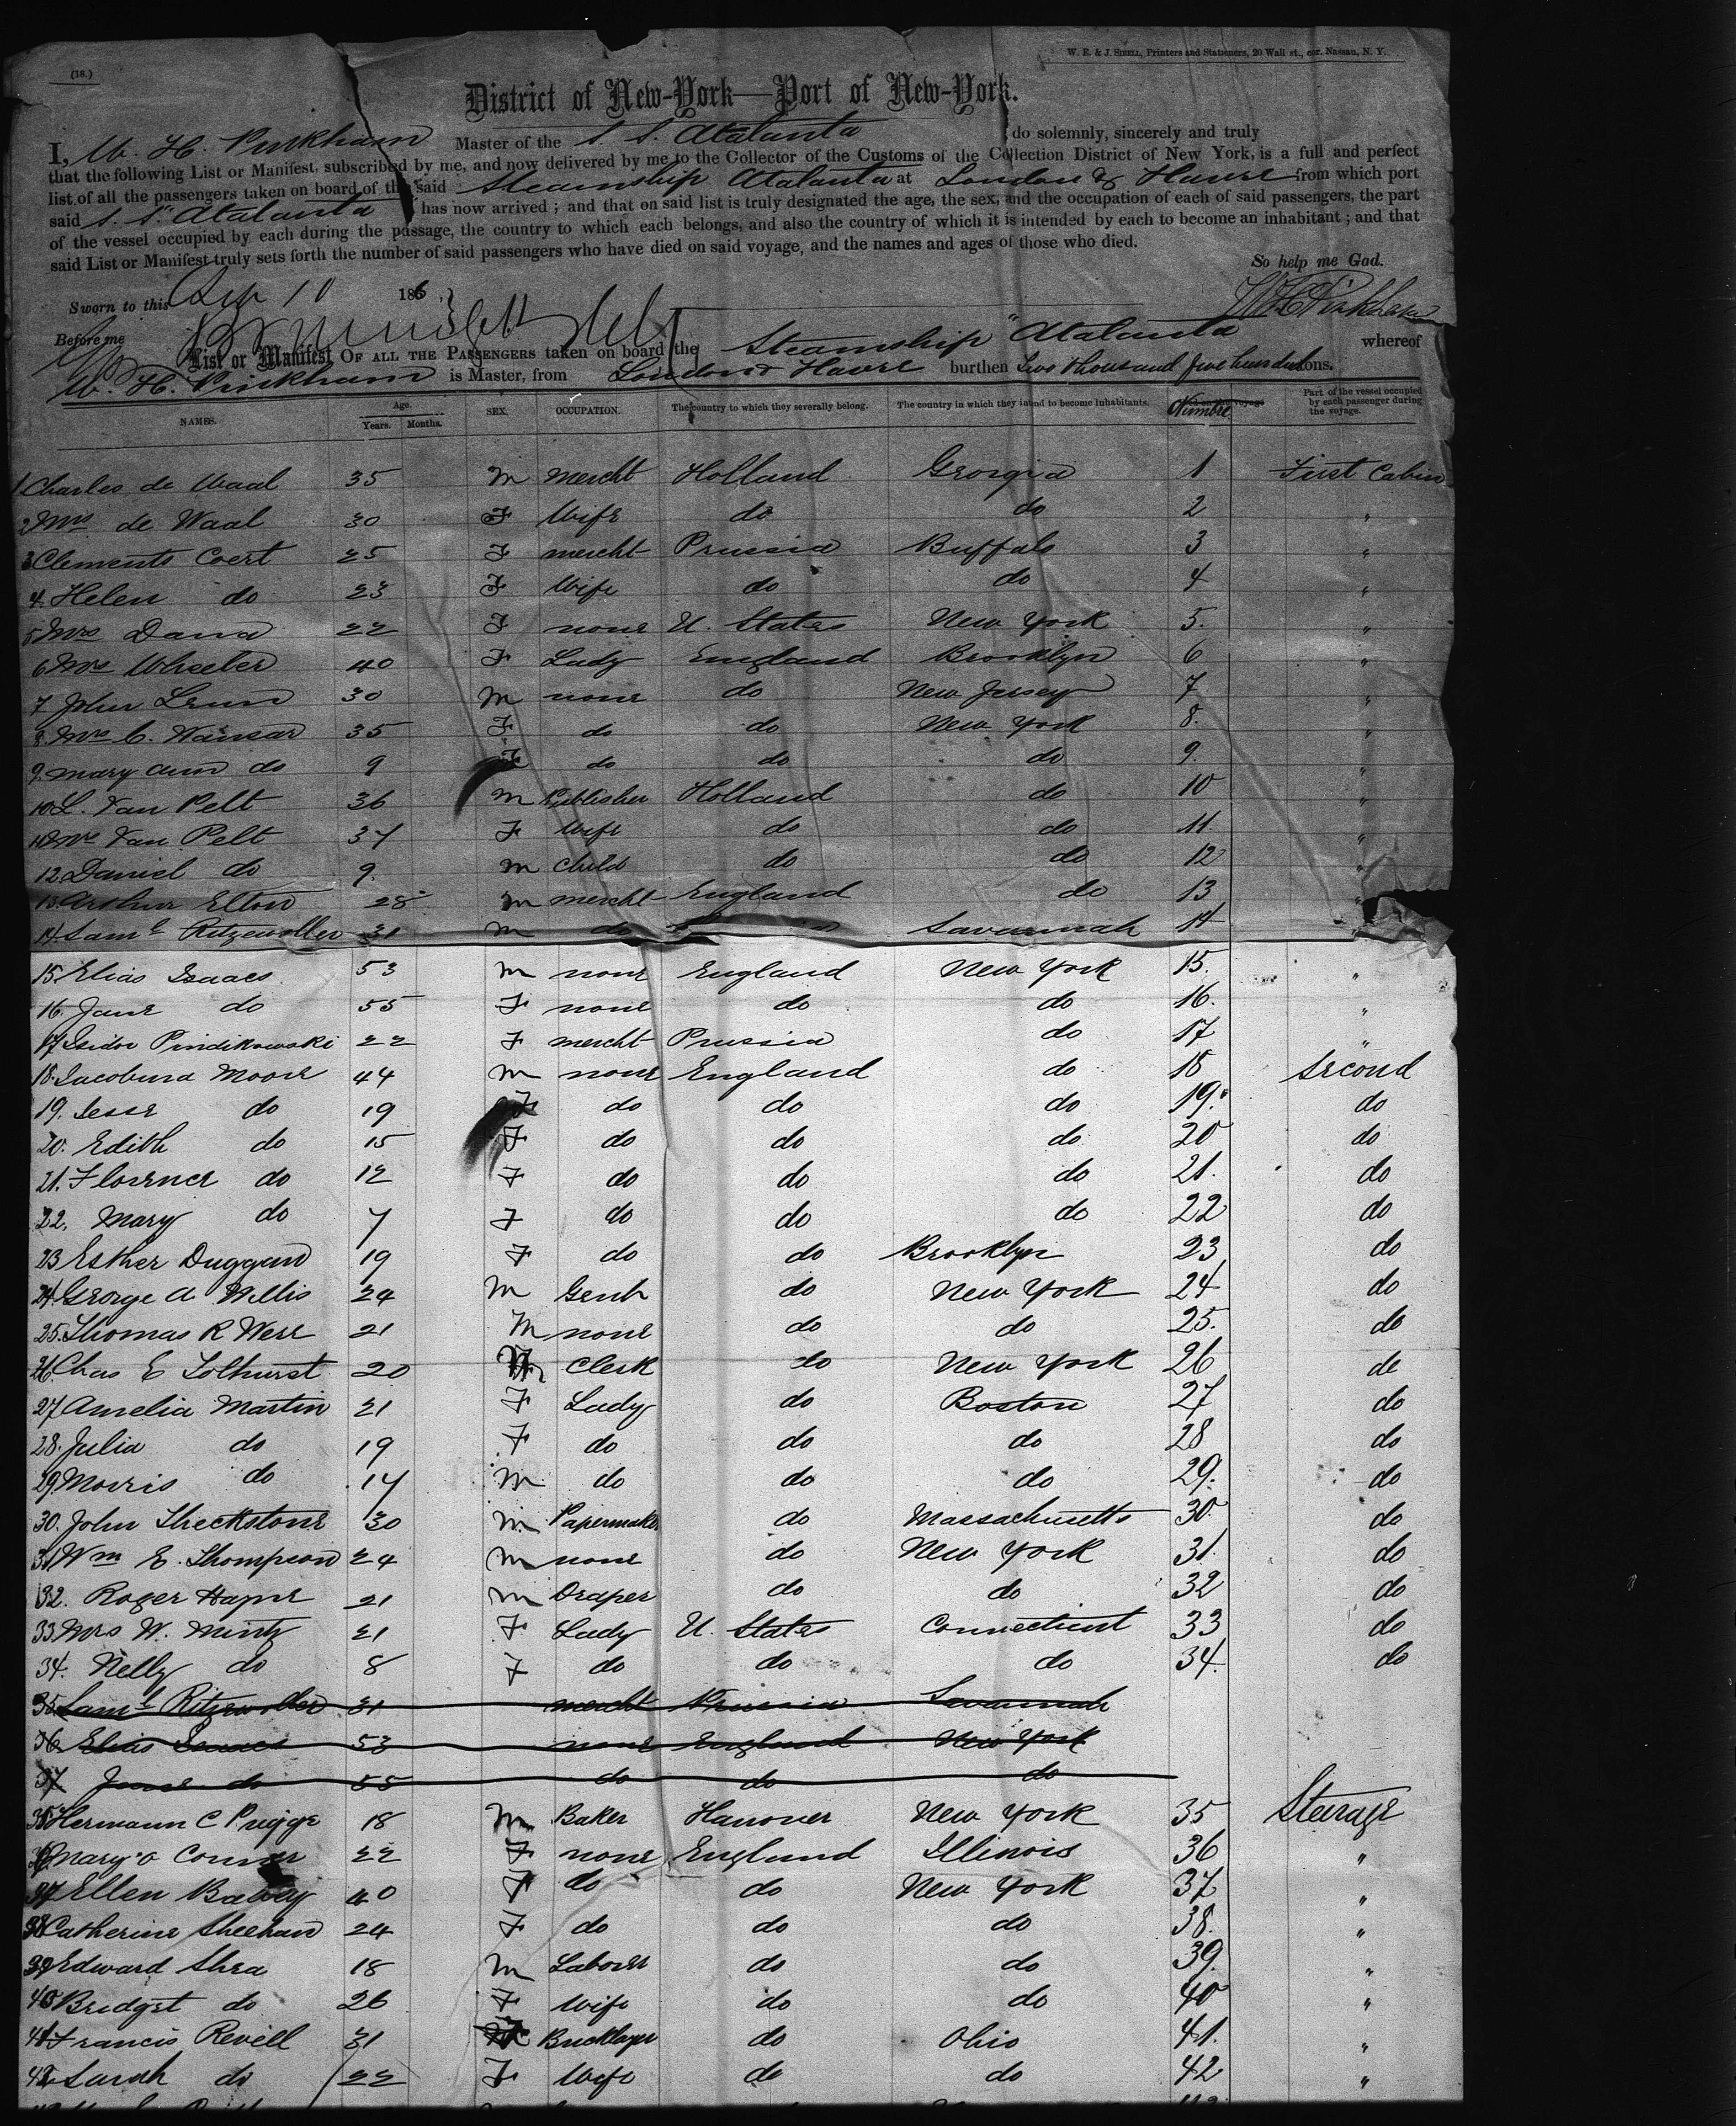 (18.)
W. E. & J. SIBELL, Printers and Stationers, 20 Wall st., cor. Nassau, N. Y.
District of New-York—Port of New-York.
I, W. H. Pinkham Master of the S. S. Atalanta do solemnly, sincerely and truly
that the following List or Manifest, subscribed by me, and now delivered by me to the Collector of the Customs of the Collection District of New York, is a full and perfect
list of all the passengers taken on board of the said Steamship Atalanta at London & Havre from which port
said S. S. Atalanta has now arrived ; and that on said list is truly designated the age, the sex, and the occupation of each of said passengers, the part
of the vessel occupied by each during the passage, the country to which each belongs, and also the country of which it is intended by each to become an inhabitant ; and that
said List or Manifest truly sets forth the number of said passengers who have died on said voyage, and the names and ages of those who died.
So help me God.
Sworn to this 10 186 W H Pinkham
Before me
List or Manifest OF ALL THE PASSENGERS taken on board the Steamship "Atalanta whereof
W. H. Pinkham is Master, from London & Havre burthen Two thousand five hundred tons.
NAMES. Age. Years. Months. SEX. OCCUPATION. The country to which they severally belong. The country in which they intend to become Inhabitants. Number Part of the vessel occupied by each passenger during the voyage.
1 Charles de Waal 35 M Mercht Holland Georgia 1 First Cabin
2 Mrs de Waal 30 F Wife do do 2 "
3 Clements Coert 25 F mercht Prussia Buffalo 3 "
4. Helen do 23 F Wife do do 4 "
5 Mrs Dana 22 F none U. States New York 5. "
6 Mrs Wheeler 40 F Lady England Brooklyn 6 "
7 John 30 M none do New Jersey 7 "
8. Mrs C. 35 F do do New York 8. "
9. Mary Ann do 9 F do do do 9. "
10 L. Van Pelt 36 M Publisher Holland do 10 "
11 Mrs Van Pelt 37 F Wife do do 11. "
12 Daniel do 9. M Child do do 12 "
13. Arthur Elton 28 M mercht England do 13 "
14 Saml Ritzewoller 31 M do Savannah 14 "
15. Elias Isaacs 53 M none England New York 15. "
16. Jane do 55 F none do do 16. "
17 Isidor Pindikowski 22 F mercht Prussia do 17 "
18. Jacobina Moore 44 M none England do 18 Second
19. Jesse do 19 F do do do 19. do
20. Edith do 15 F do do do 20 do
21. Florence do 12 F do do do 21. do
22. Mary do 7 F do do do 22 do
23 Esther Duggan 19 F do do Brooklyn 23 do
24. George A Willis 24 M Gent do New York 24 do
25. Thomas R West 21 M none do do 25. do
26. Chas E Tolhurst 20 M Clerk do New York 26 do
27 Amelia Martin 21 F Lady do Boston 27 do
28. Julia do 19 F do do do 28 do
29 Morris do 14 M do do do 29. do
30. John Sheckstone 30 M Papermaker do Massachusetts 30. do
31 Wm E. Thompson 24 M none do New York 31. do
32. Roger Hayne 21 M Draper do do 32 do
33 Mrs W. Mintz 21 F Lady U. States Connecticut 33 do
34. Nelly do 8 F do do do 34. do
35 Saml Ritzewoller 31 mercht Prussia Savannah
36 Elias Isaacs 53 none England New York
37 Jane do 55 do do do
35 Hermann C Prigge 18 M Baker Hanover New York 35 Steerage
36 Mary O Connor 22 F none England Illinois 36 "
37 Ellen 40 F do do New York 37 "
38 Catherine Sheehan 24 F do do do 38. "
39 Edward Shea 18 M Laborer do do 39. "
40 Bridget do 26 F Wife do do 40 "
41 Francis Revell 31 M Bricklayer do Ohio 41. "
42 Sarah do 22 F Wife do do 42 "